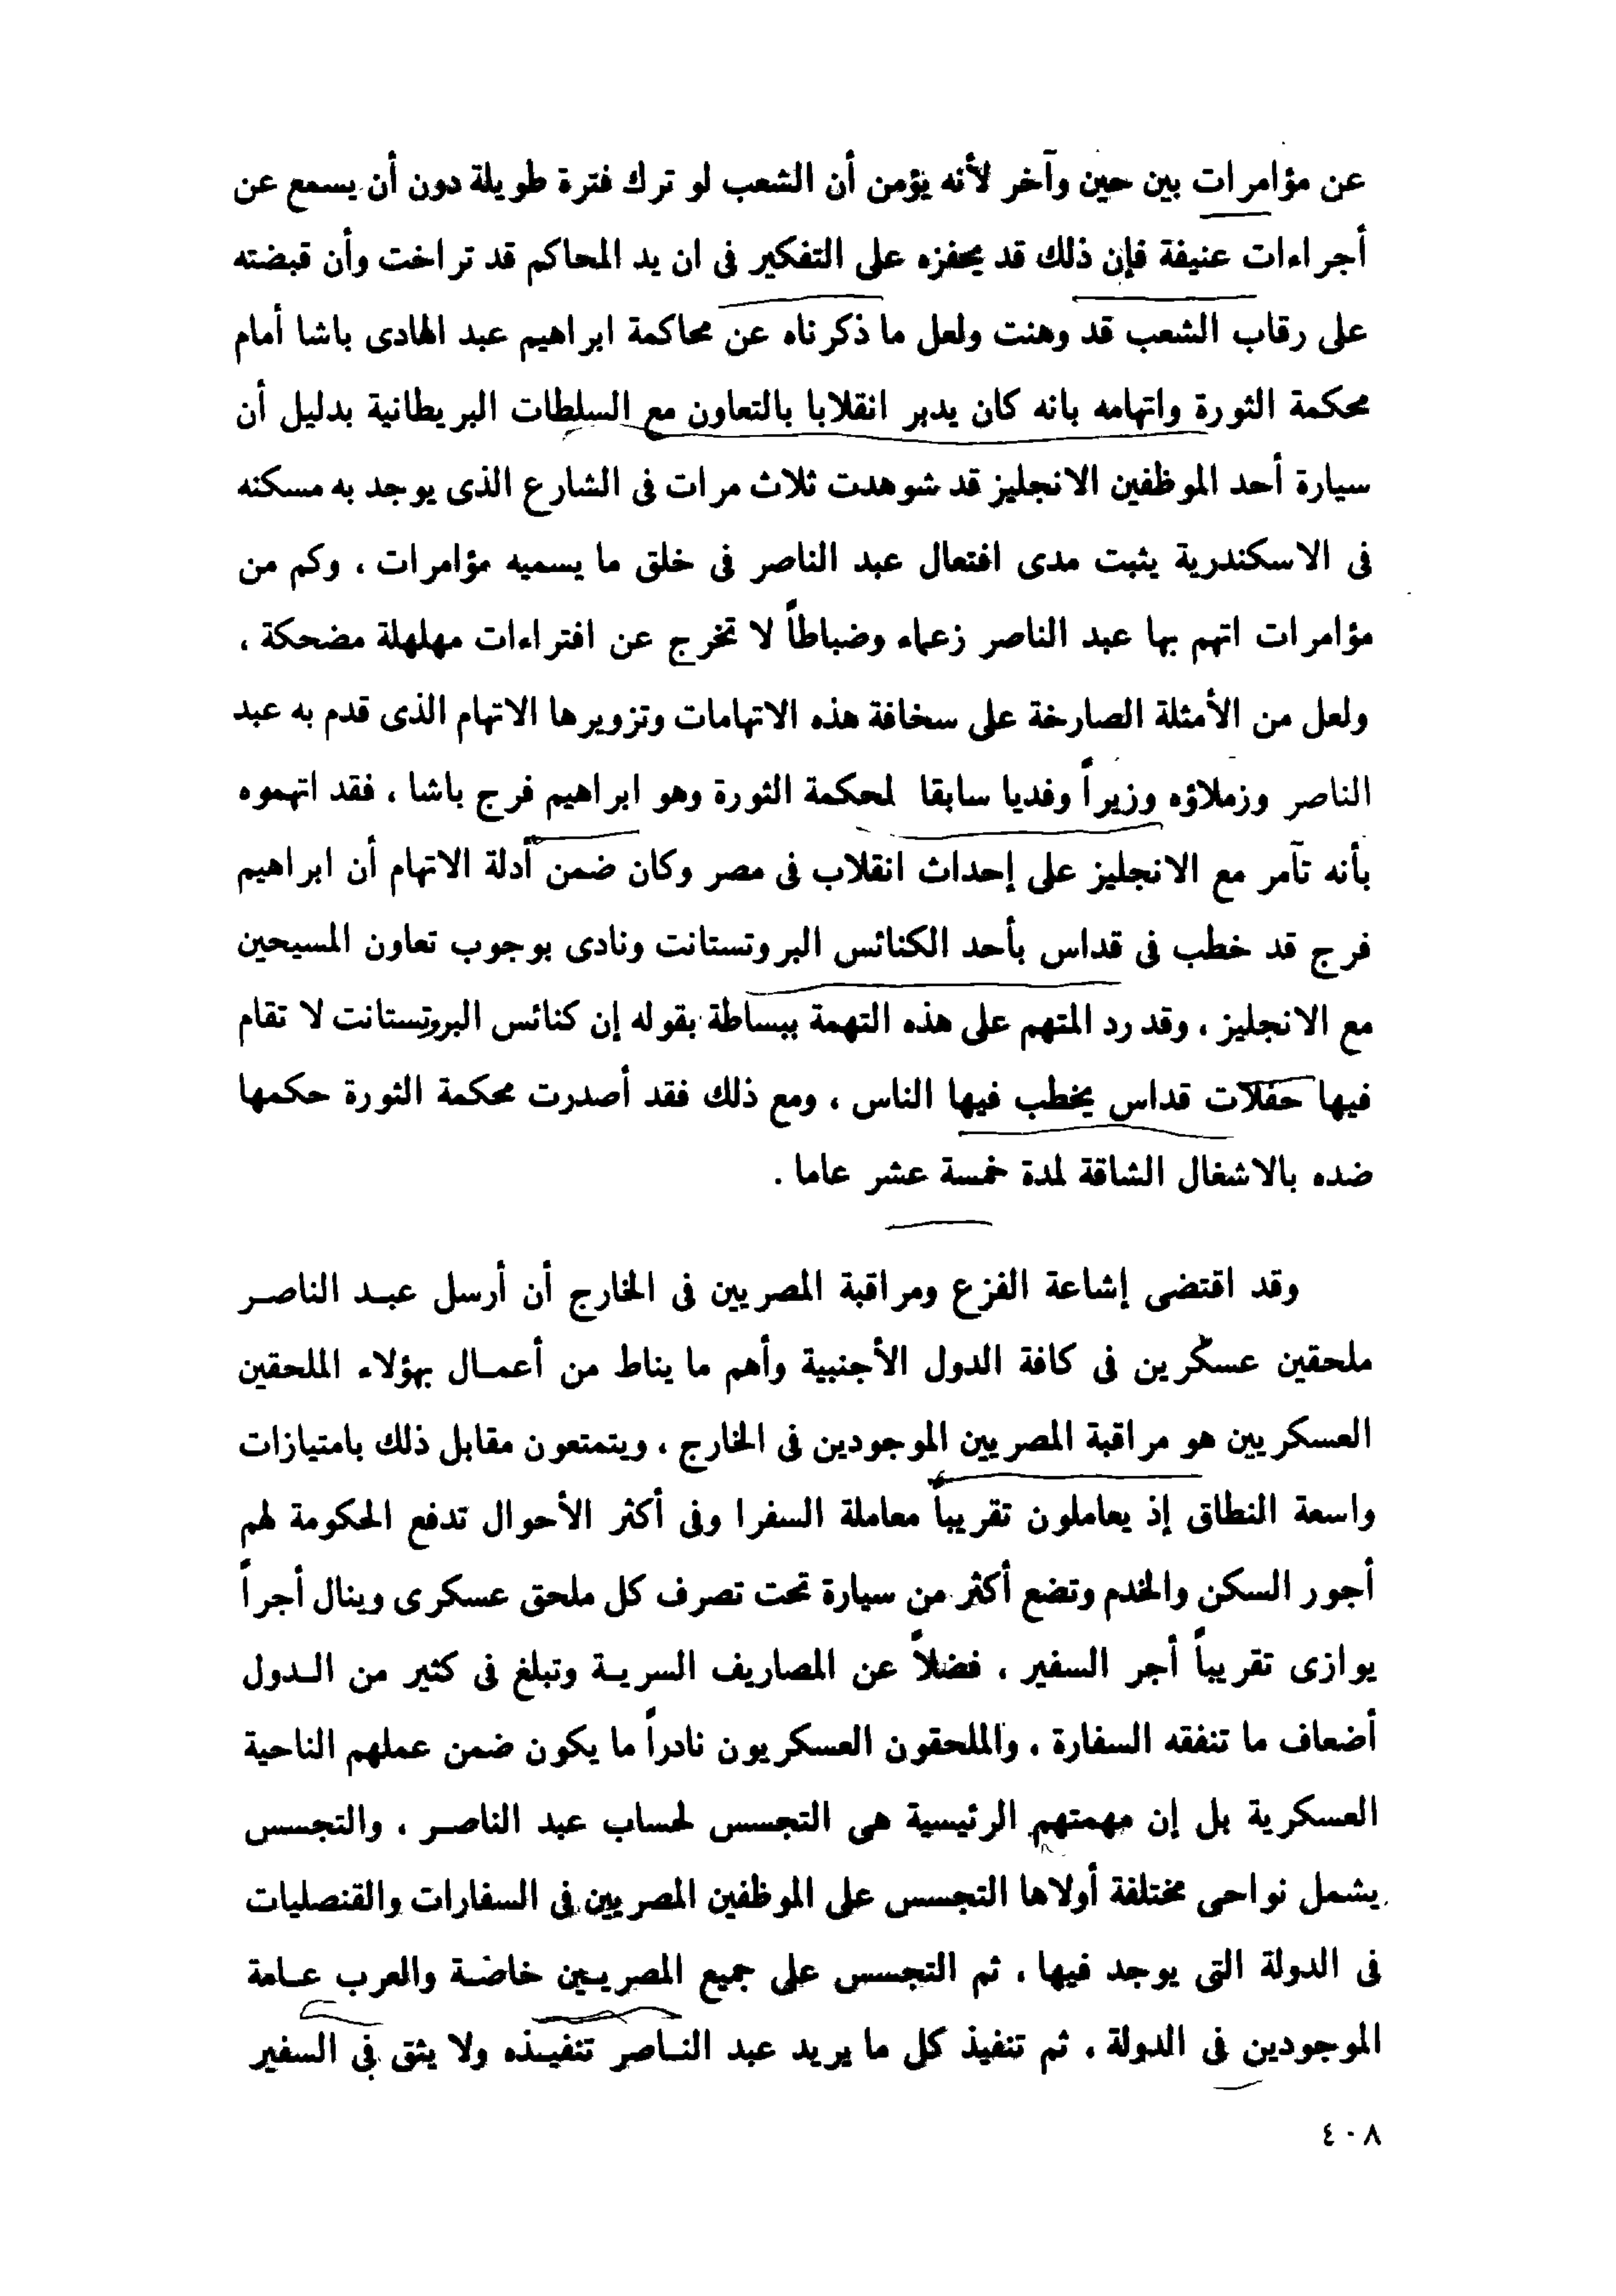 عن مؤامرات بين حين وآخر لأنه يؤمن أن الشعب لو ترك فترة طويلة دون أن يسمع عن
أجراءات عنيفة فإن ذلك قد يحفزه على التفكير فى ان يد المحاكم قد تراخت وأن قبضته
على رقاب الشعب قد وهنت ولعل ما ذكرناه عن محاكمة ابراهيم عبد الهادى باشا أمام
محكمة الثورة واتهامه بانه كان يدبر انقلابا بالتعاون مع السلطات البريطانية بدليل أن
سيارة أحد الموظفين الانجليز قد شوهدت ثلاث مرات فى الشارع الذى يوجد به مسكنه
فى الاسكندرية يثبت مدى افتعال عبد الناصر فى خلق ما يسميه مؤامرات ، وكم من
مؤامرات اتهم بها عبد الناصر زعماء وضباطاً لا تخرج عن افتراءات مهلهلة مضحكة ،
ولعل من الأمثلة الصارخة على سخافة هذه الاتهامات وتزويرها الاتهام الذى قدم به عبد
الناصر وزملاؤه وزيراً وفديا سابقا لمحكمة الثورة وهو ابراهيم فرج باشا ، فقد اتهموه
بأنه تآمر مع الانجليز على إحداث انقلاب فى مصر وكان ضمن أدلة الاتهام أن ابراهيم
فرج قد خطب فى قداس بأحد الكنائس البروتستانت ونادى بوجوب تعاون المسيحين
مع الانجليز ، وقد رد المتهم على هذه التهمة ببساطة بقوله إن كنائس البروتستانت لا تقام
فيها حفلات قداس يخطب فيها الناس ، ومع ذلك فقد أصدرت محكمة الثورة حكمها
ضده بالاشغال الشاقة لمدة خمسة عشر عاما .
وقد اقتضى إشاعة الفزع ومراقبة المصريين فى الخارج أن أرسل عبد الناصر
ملحقين عسكرين فى كافة الدول الأجنبية وأهم ما يناط من أعمال بهؤلاء الملحقين
العسكريين هو مراقبة المصريين الموجودين فى الخارج ، ويتمتعون مقابل ذلك بامتيازات
واسعة النطاق إذ يعاملون تقريباً معاملة السفرا وفى أكثر الأحوال تدفع الحكومة لهم
أجور السكن والخدم وتضع أكثر من سيارة تحت تصرف كل ملحق عسكرى وينال أجراً
يوازى تقريباً أجر السفير ، فضلاً عن المصاريف السرية وتبلغ فى كثير من الدول
أضعاف ما تنفقه السفارة ، والملحقون العسكريون نادراً ما يكون ضمن عملهم الناحية
العسكرية بل إن مهمتهم الرئيسية هى التجسس لحساب عبد الناصر ، والتجسس
يشمل نواحى مختلفة أولاها التجسس على الموظفين المصريين فى السفارات والقنصليات
فى الدولة التى يوجد فيها ، ثم التجسس على جميع المصريين خاصة والعرب عامة
الموجودين فى الدولة ، ثم تنفيذ كل ما يريد عبد الناصر تنفيذه ولا يثق فى السفير
٤٠٨